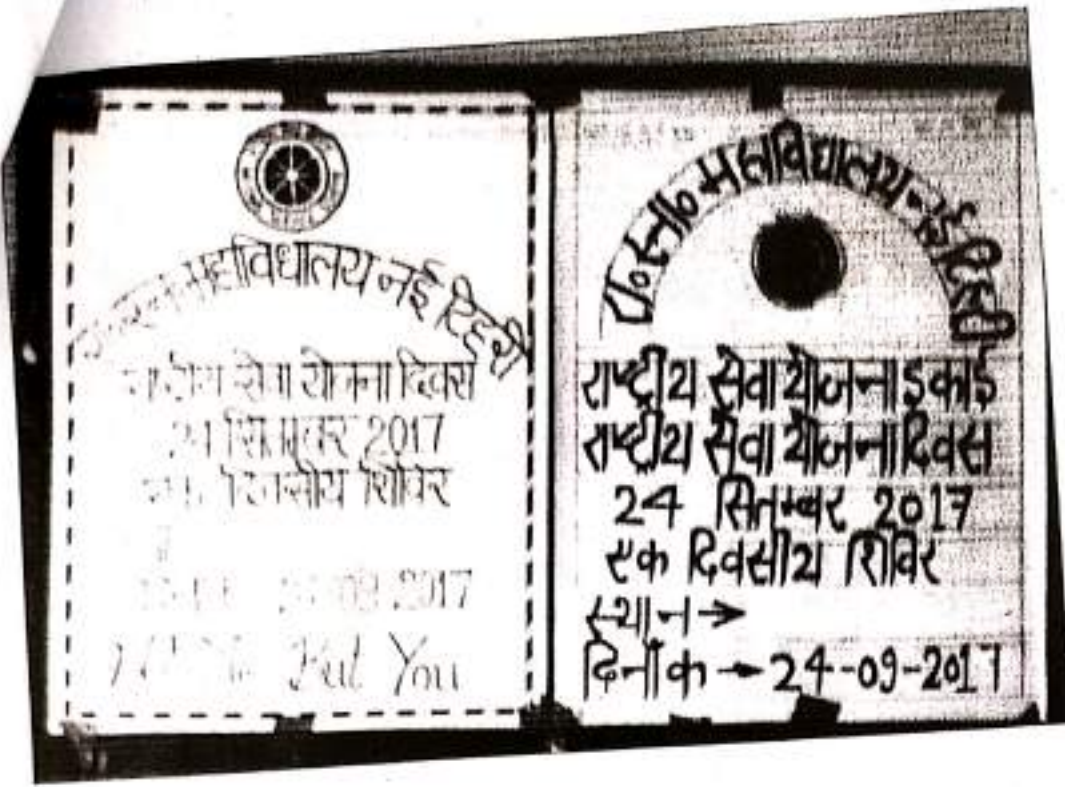 महाविधालय नई टिहरी
राष्ट्रीय सेवा योजना दिवस
24 सितम्बर 2017
दिवसीय शिविर
2017
But You
रा०स्ना० महाविद्यालय-नई टिहरी
राष्ट्रीय सेवा योजना इकाई
राष्ट्रीय सेवा योजना दिवस
24 सितम्बर 2017
एक दिवसीय शिविर
स्थान →
दिनाँक → 24-09-2017